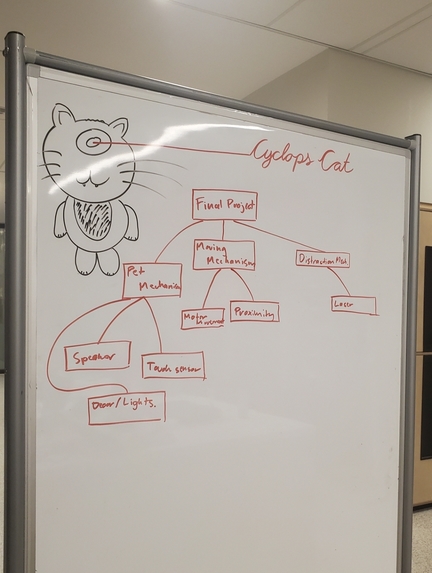 Cyclops Cat
Final Project
Moving
Mechanism
Pet
Mechanism
Motor
Proximity
Laser
Speaker
Touch sensor
/Lights.